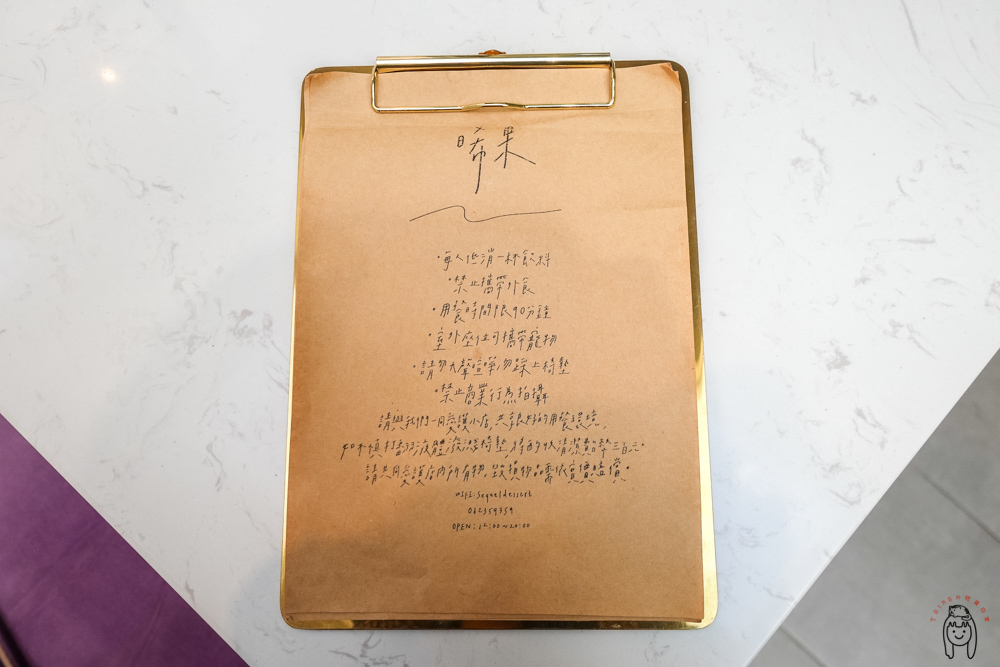 晞果
·每人低消一杯飲料
·禁止攜帶外食
·用餐時間限90分鐘
·室外座位可攜帶寵物
·請勿大聲喧嘩勿踩上椅墊
·禁止商業行為拍攝
請與我們一同愛護小店,共享良好的用餐環境,
如不慎打翻液體潑濕椅墊,將酌收清潔費整三百元。
請共同愛護店內所有物,毀損物品需依實價賠償。
062359359
OPEN:12:00~20:00